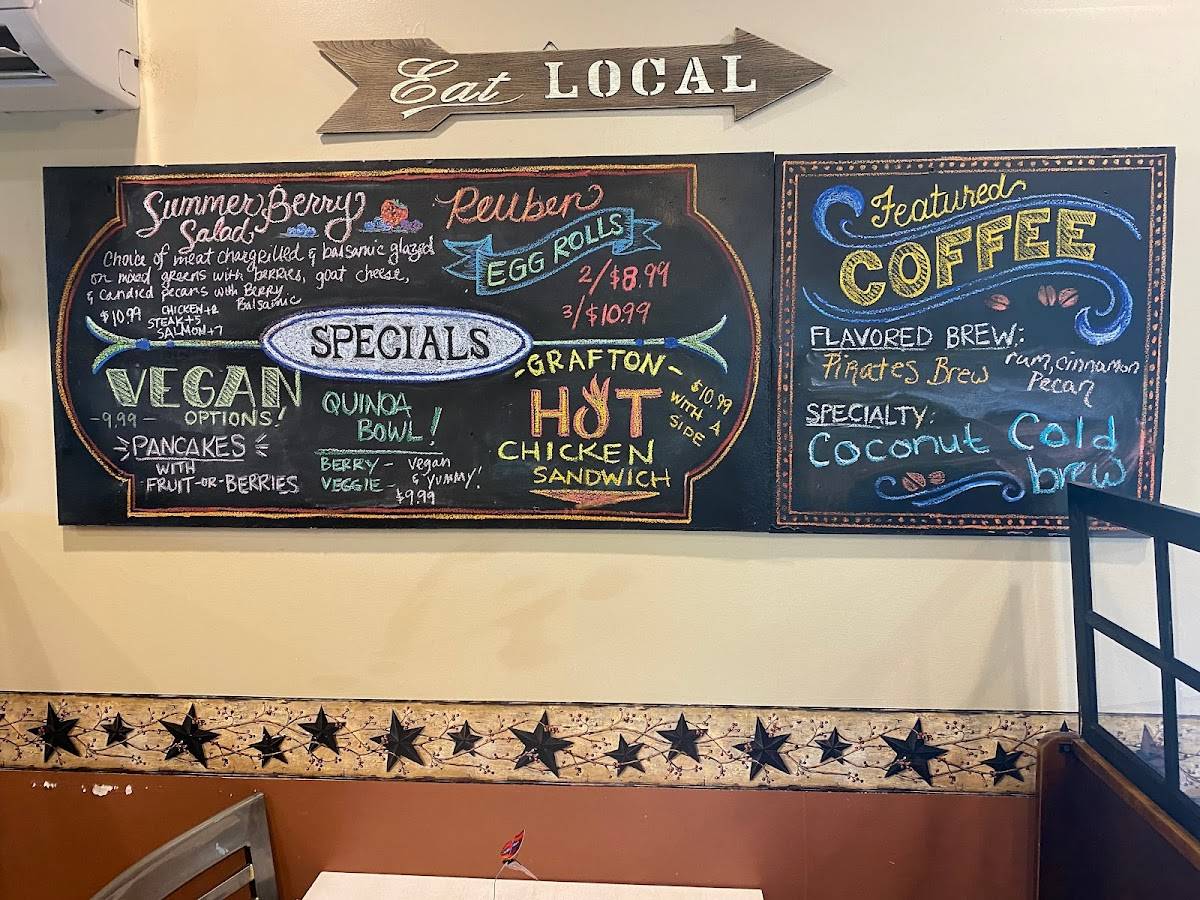 Eat LOCAL
Summer Berry
Salad
Choice of meat chargrilled & balsamic glazed
on mixed greens with berries, goat cheese,
& candied pecans with Berry
Balsamic
$10.99
CHICKEN+2
STEAK+5
SALMON+7
Reuben
EGG ROLLS
2/$8.99
3/$10.99
SPECIALS
VEGAN
-9.99-
OPTIONS!
PANCAKES
WITH
FRUIT-OR-BERRIES
QUINOA
BOWL!
BERRY - vegan
VEGGIE - & YUMMY!
$9.99
-GRAFTON-
HOT
CHICKEN
SANDWICH
$10.99
WITH A
SIDE
Featured
COFFEE
FLAVORED BREW:
Pirates Brew
rum, cinnamon
Pecan
SPECIALTY:
Coconut Cold
brew